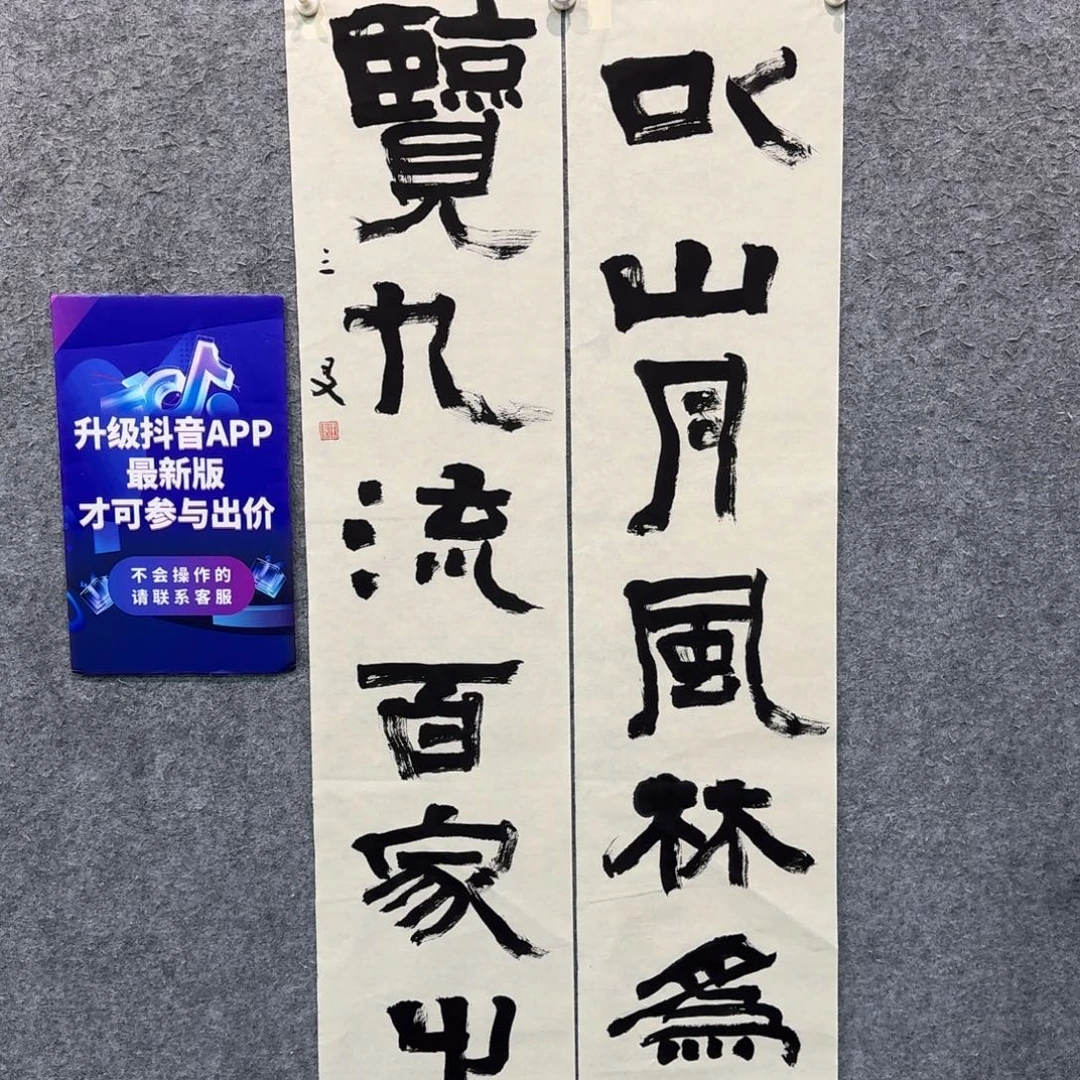 以山月風林為
覽九流百家之
三
升级抖音APP
最新版
才可参与出价
不会操作的
请联系客服